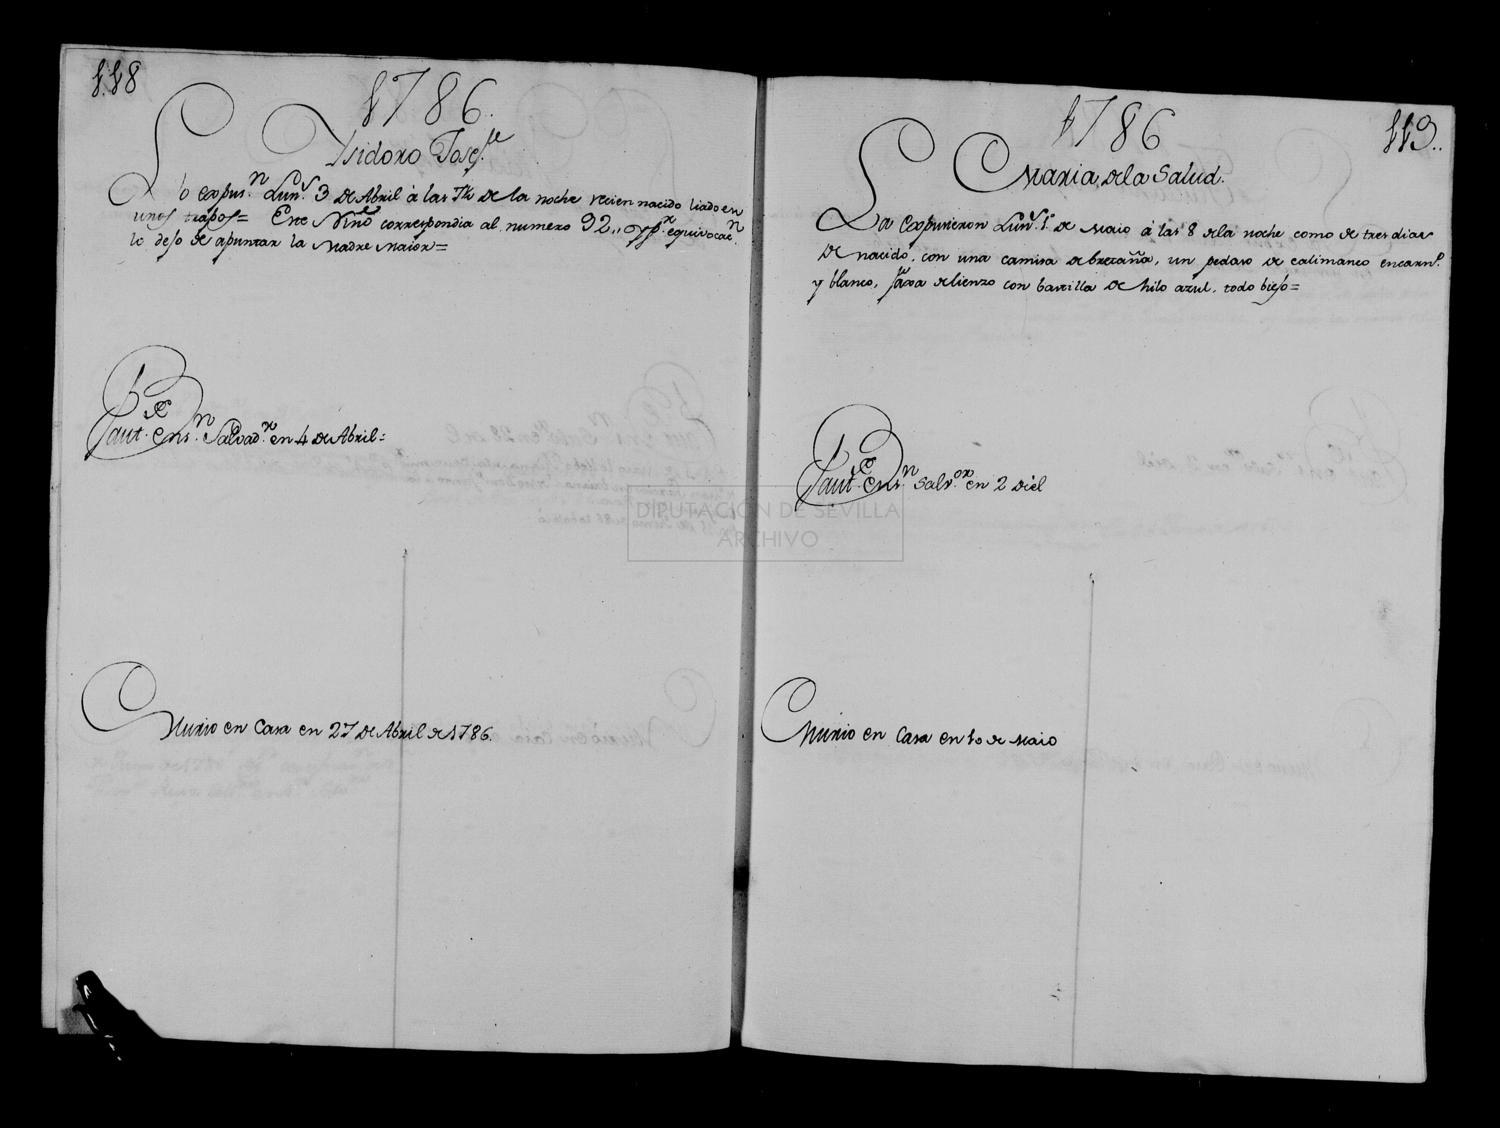 118
1786.
Isidoro Josef.
Lo expus.n Lun.s 3 de Abril à las 7½ de la noche recien nacido liado en
unos trapos= Este Niño correspondia al numero 92,, y p.r equivocac.n
lo dejo de apuntar la Madre Maior=
Bautz.e en s.n Salvad.r en 4 de Abril=
Murio en Casa en 27 de Abril de 1786.
1786
119..
Maria de la Salud.
La Expusieron Lun.s 1.º de Maio á las 8 de la noche como de tres dias
de nacido, con una camisa de bretaña, un pedaso de calimanco encarn.º
y blanco, faxa de lienzo con bastilla de hilo azul, todo biejo=
Bautz.e en s.n Salv.or en 2 de él
Murio en Casa en 10 de Maio
DIPUTACION DE SEVILLA
ARCHIVO